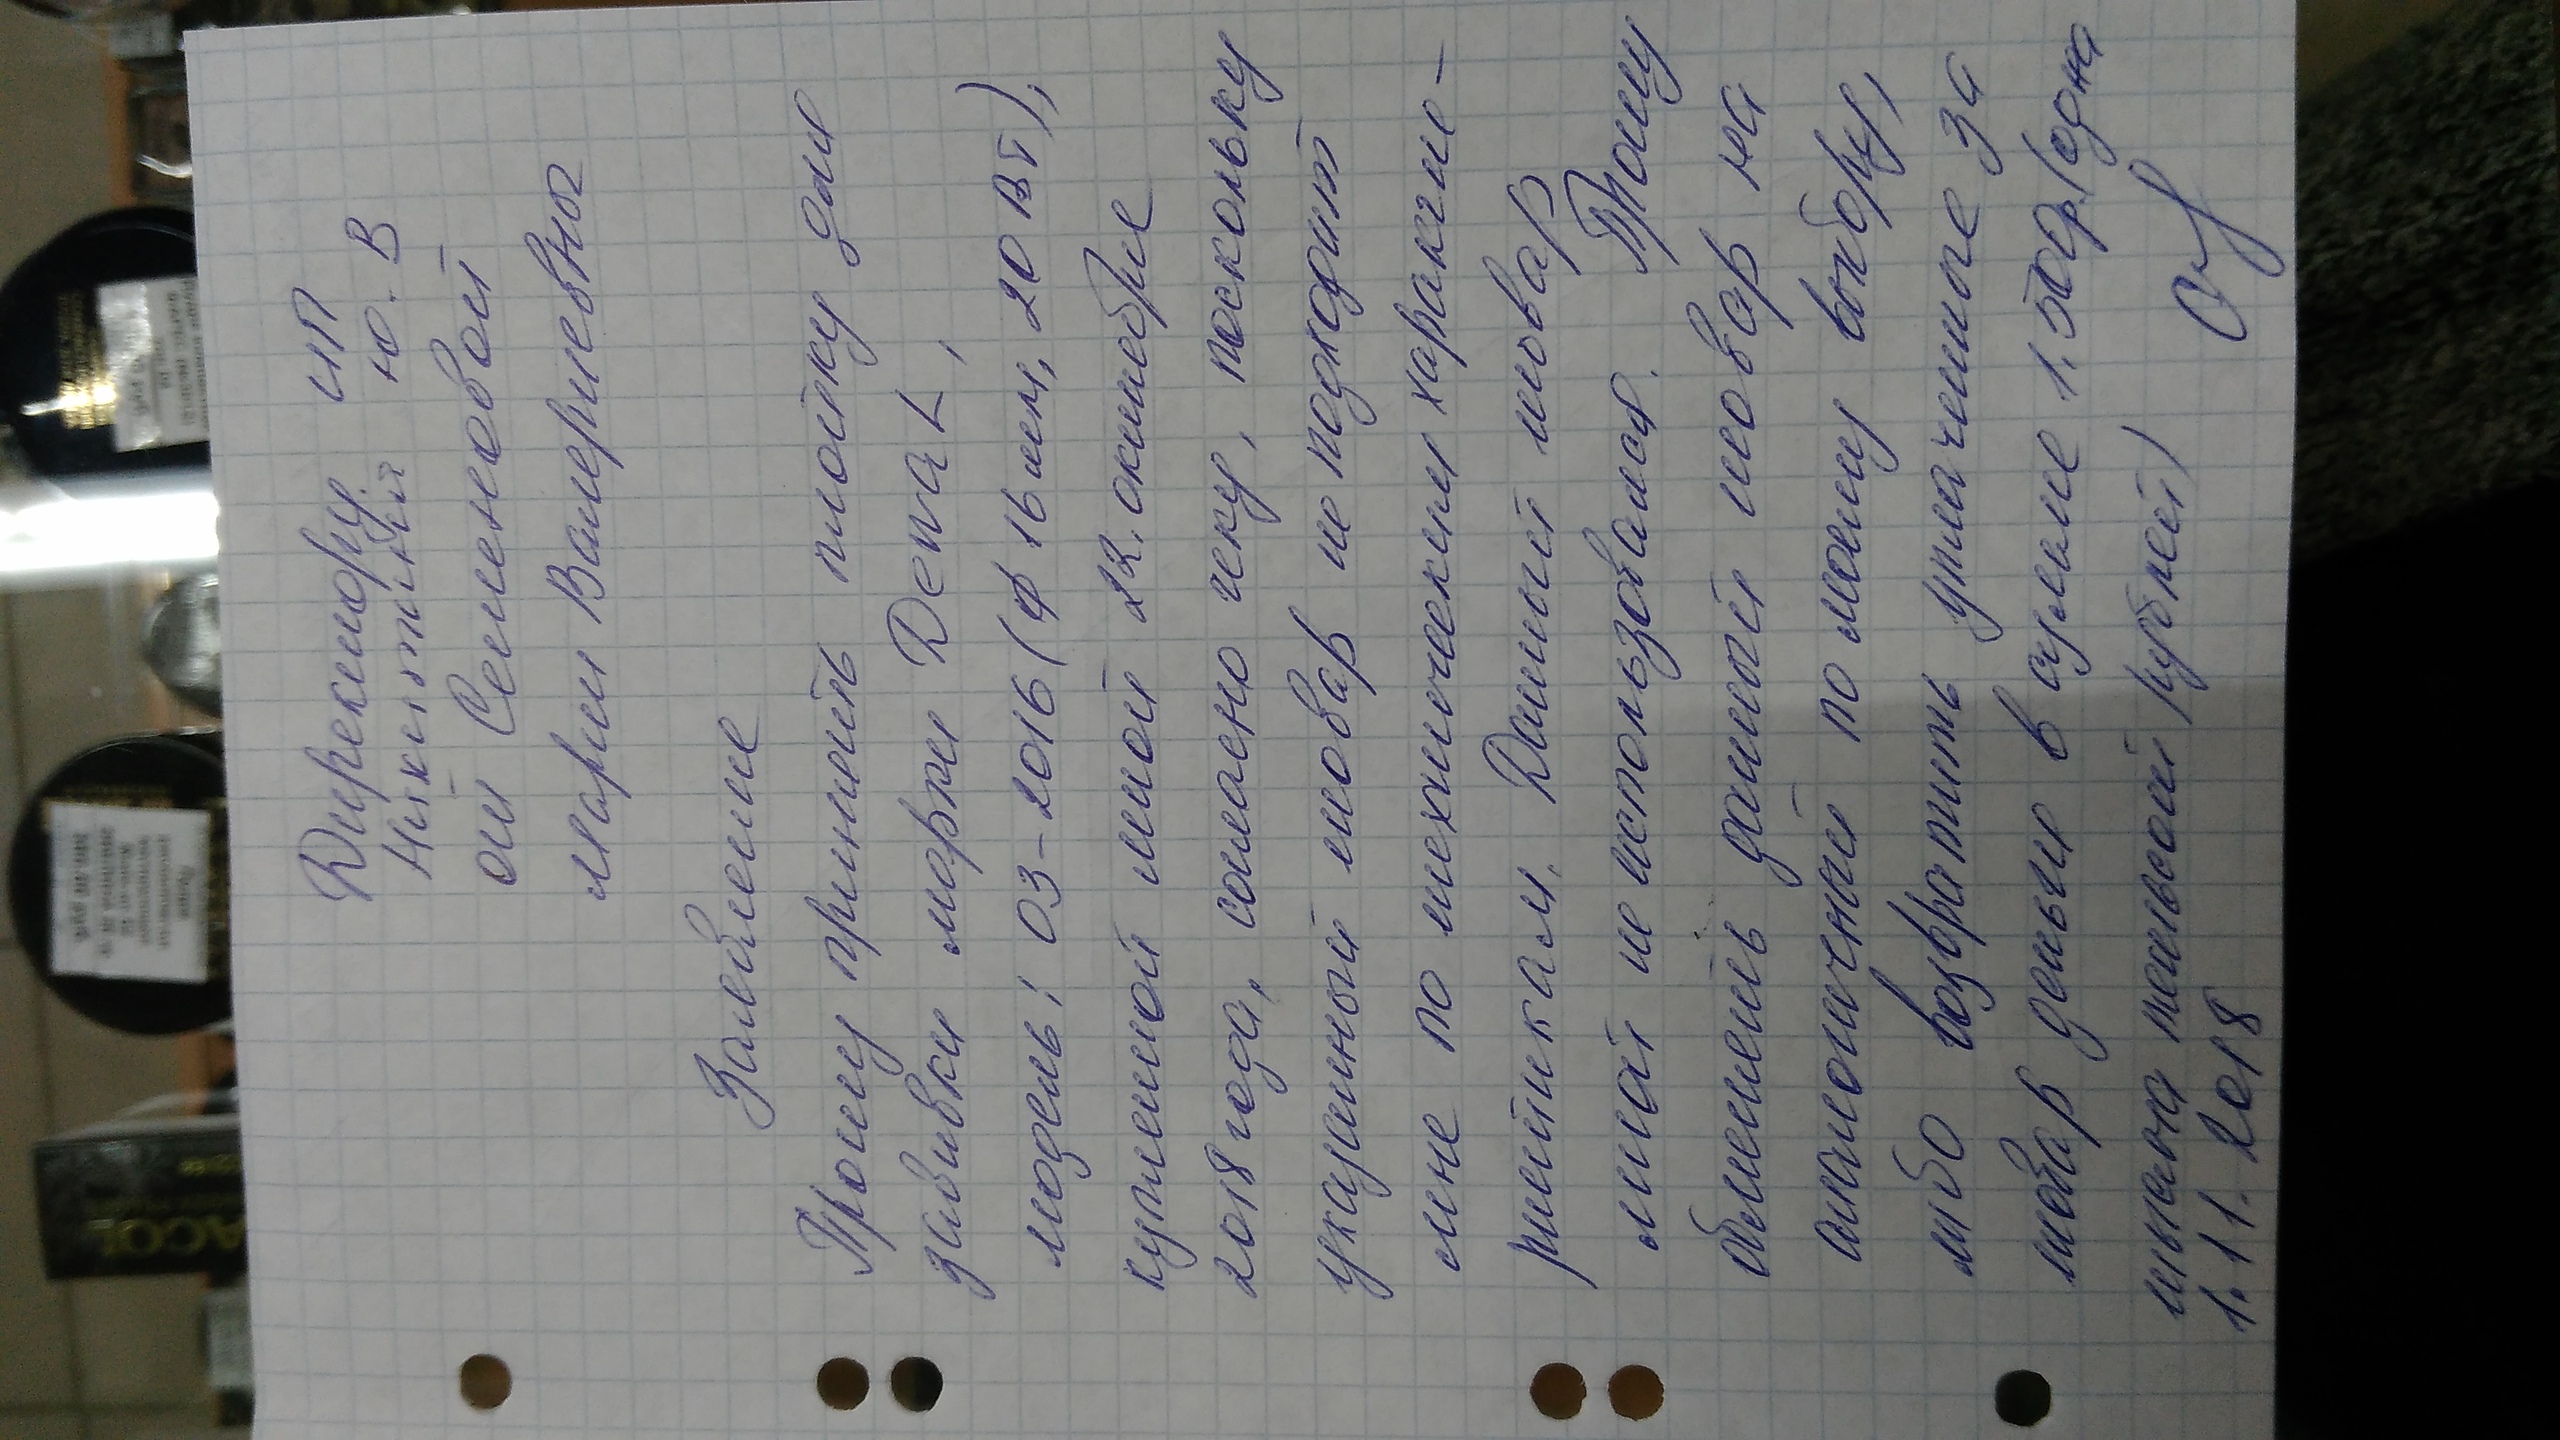 Директору ИП
Никитиной Ю. В
от Семеновой
Марии Валериевны
Заявление
Прошу принять плойку для
завивки марки Dewal,
модель: 03-2016 (ф 16 мм, 20 Вт),
купленной мной 22. октября
2018 года, согласно чеку, поскольку
указанный товар не подходит
мне по техническим характе-
ристикам. Данный товар
мной не использовался. Прошу
обменять данный товар на
аналогичный по моему выбору,
либо возвратить уплаченные за
товар деньги в сумме 1.500р. (одна
тысяча пятьсот рублей)
1.11.2018